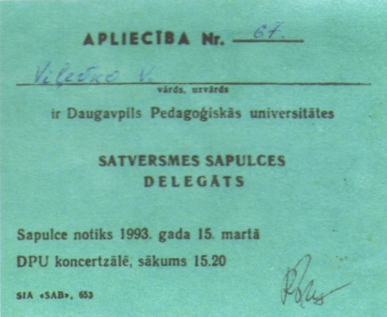 APLIECĪBA Nr. 67.
V.
vārds, uzvārds
ir Daugavpils Pedagoģiskās universitātes
SATVERSMES SAPULCES
DELEGĀTS
Sapulce notiks 1993. gada 15. martā
DPU koncertzālē, sākums 15.20
SIA «SAB», 653